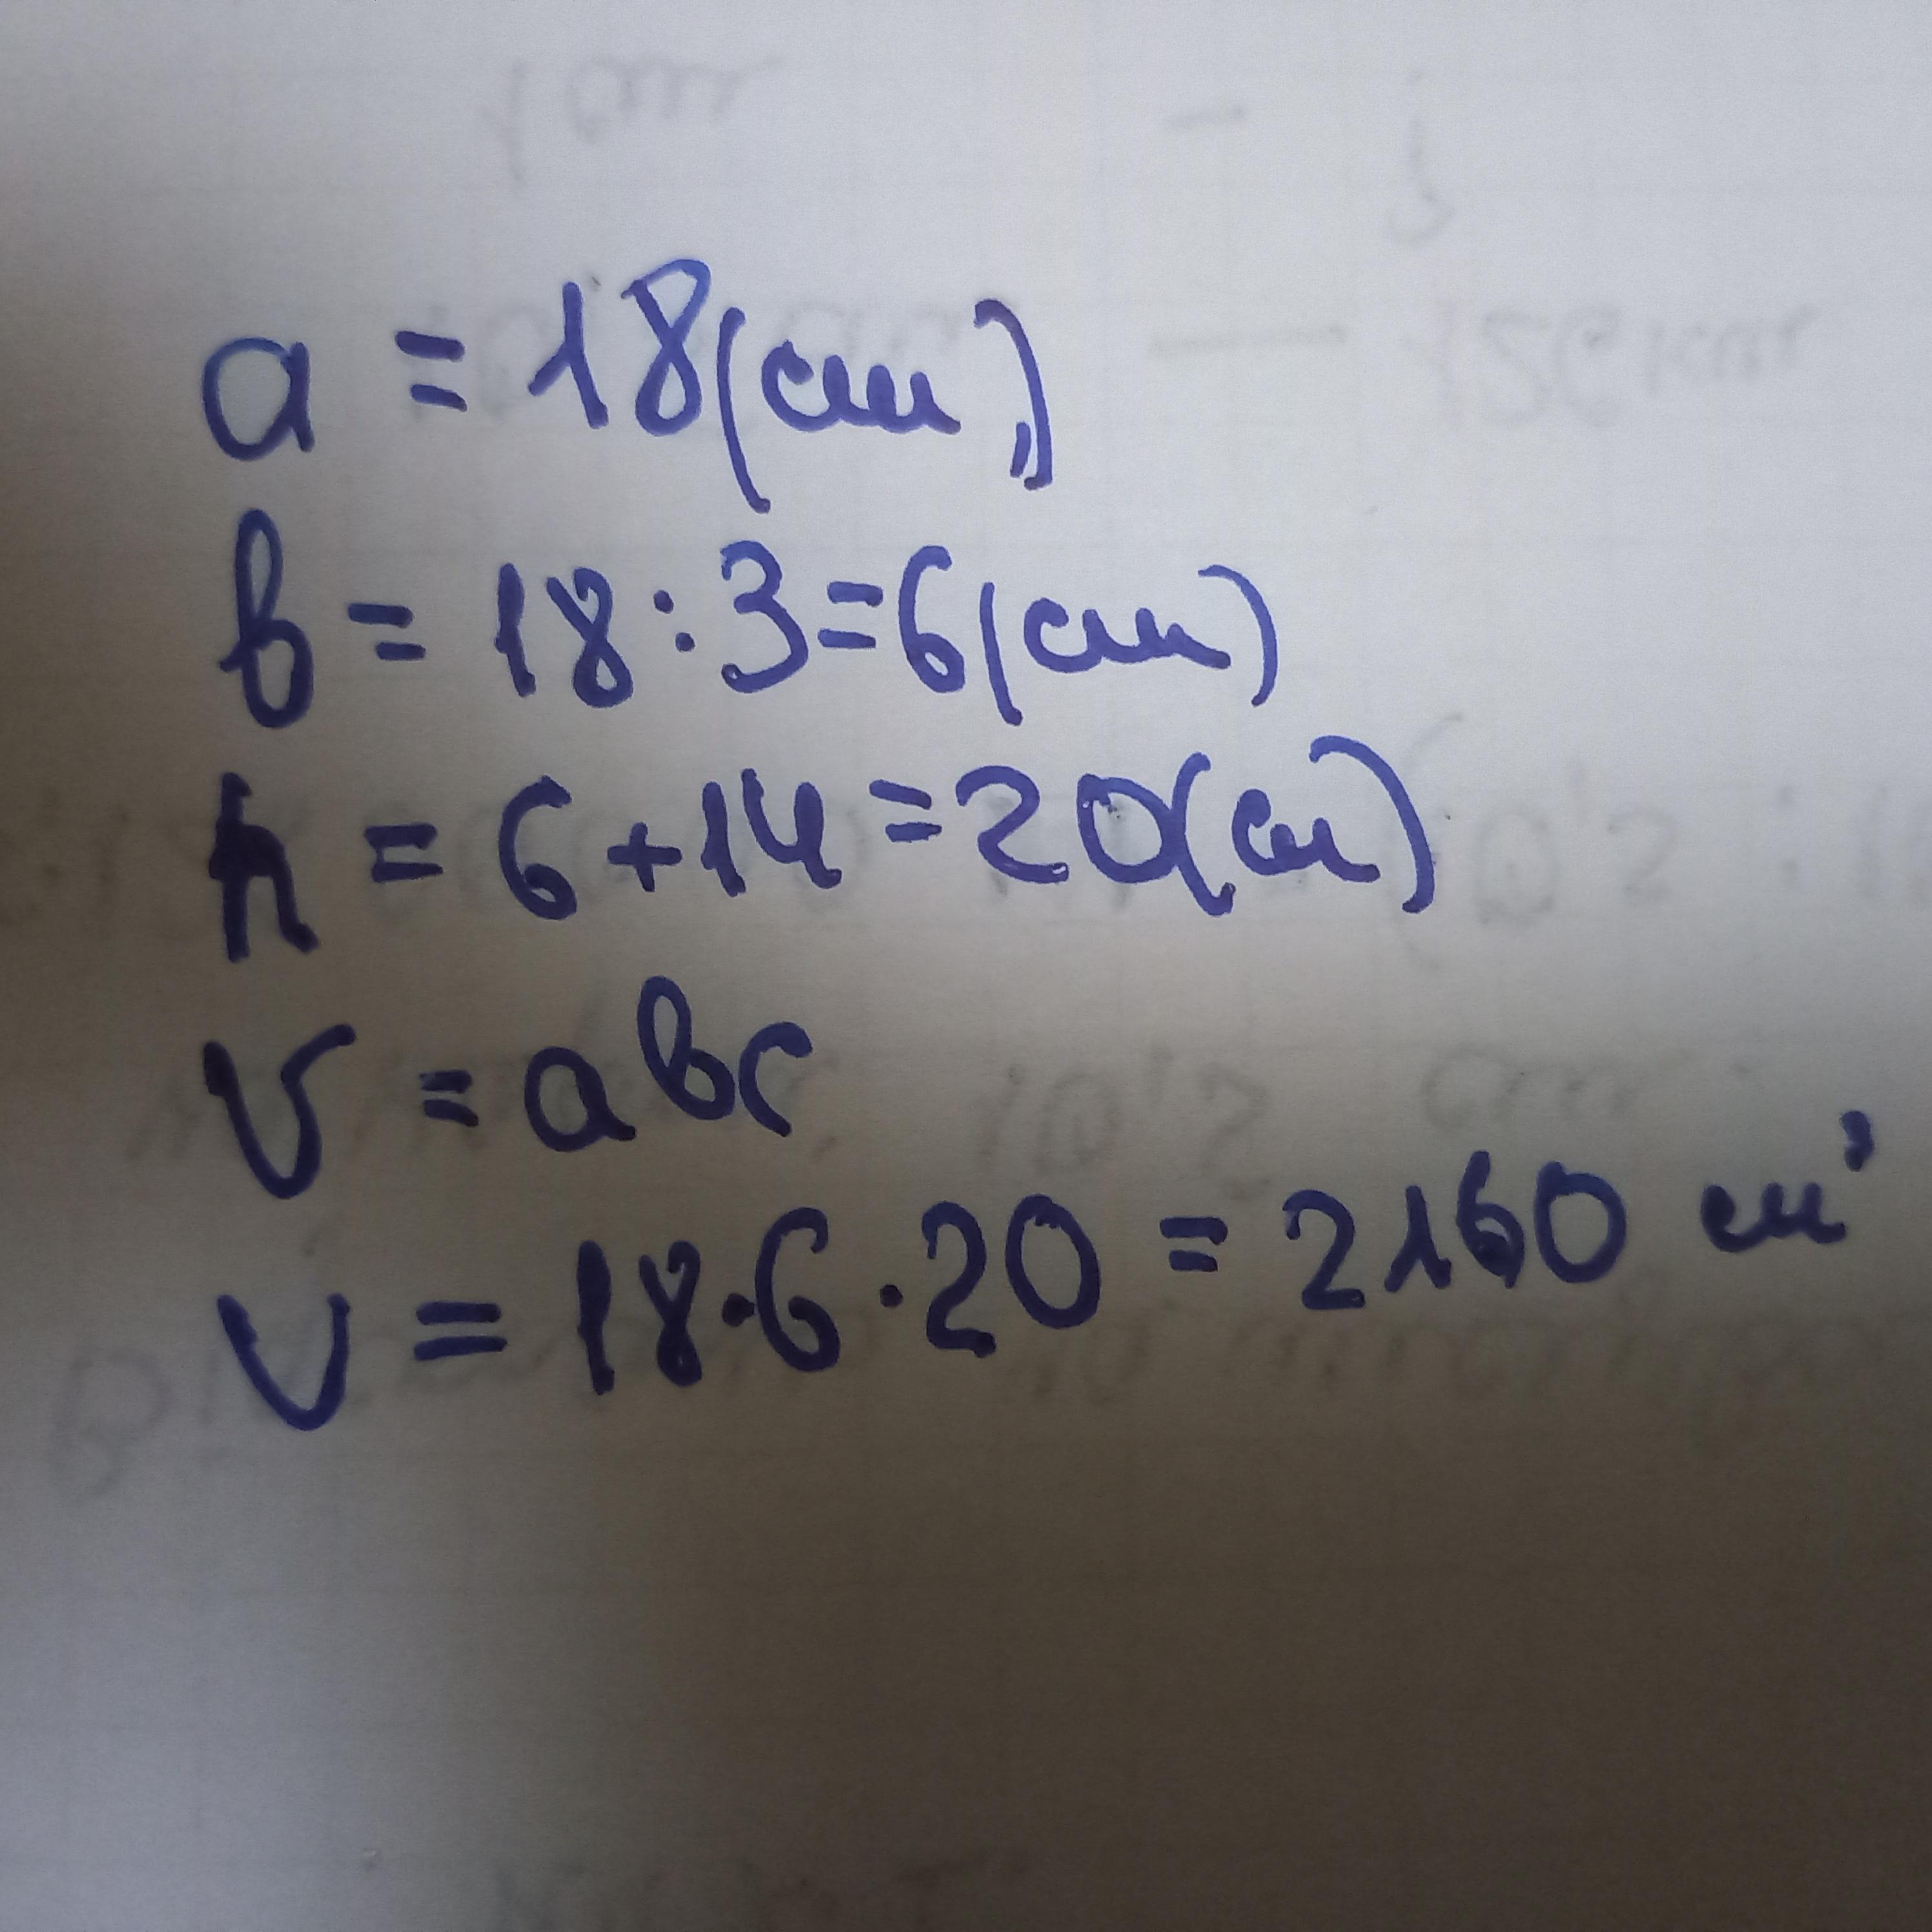 a = 18 (см)
в = 18 : 3 = 6 (см)
h = 6 + 14 = 20 (см)
V = aвc
V = 18 · 6 · 20 = 2160 см³